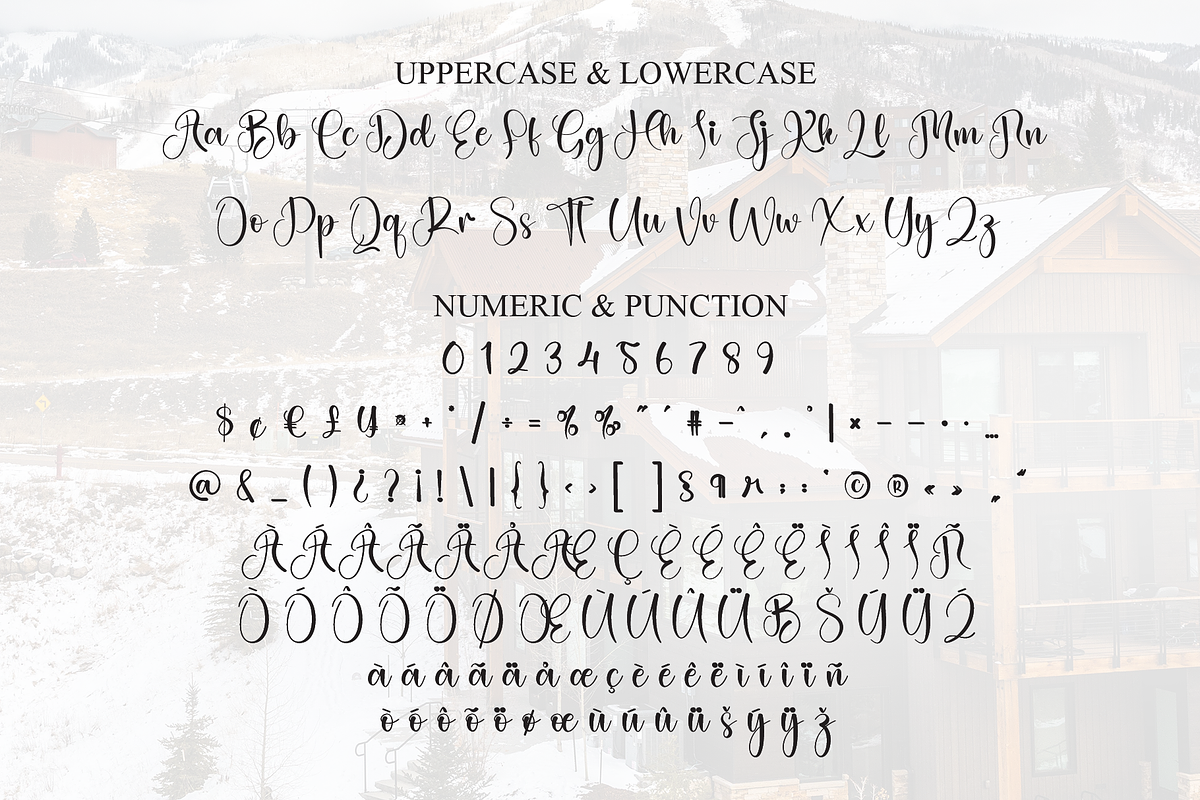 UPPERCASE & LOWERCASE
Aa Bb Cc Dd Ee Ff Gg Hh Ii Jj Kk Ll Mm Nn
Oo Pp Qq Rr Ss Tt Uu Vv Ww Xx Yy Zz
NUMERIC & PUNCTION
0 1 2 3 4 5 6 7 8 9
$ ¢ € £ ¥ ¤ + · / ÷ = % ‰ ˝ ´ # – ˆ ¸ . ° | × – — • · …
@ & _ ( ) ¿ ? ¡ ! \ | { } ‹ › [ ] § ¶ ; : ' © ® « » „ “
À Á Â Ã Ä Å Æ Ç È É Ê Ë Ì Í Î Ï Ñ
Ò Ó Ô Õ Ö Ø Œ Ù Ú Û Ü Š Ý Ÿ
à á â ã ä å æ ç è é ê ë ì í î ï ñ
ò ó ô õ ö ø œ ù ú û ü š ý ÿ ž